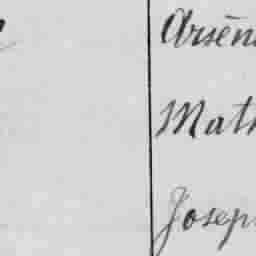 Arsèn
Math
Joseph